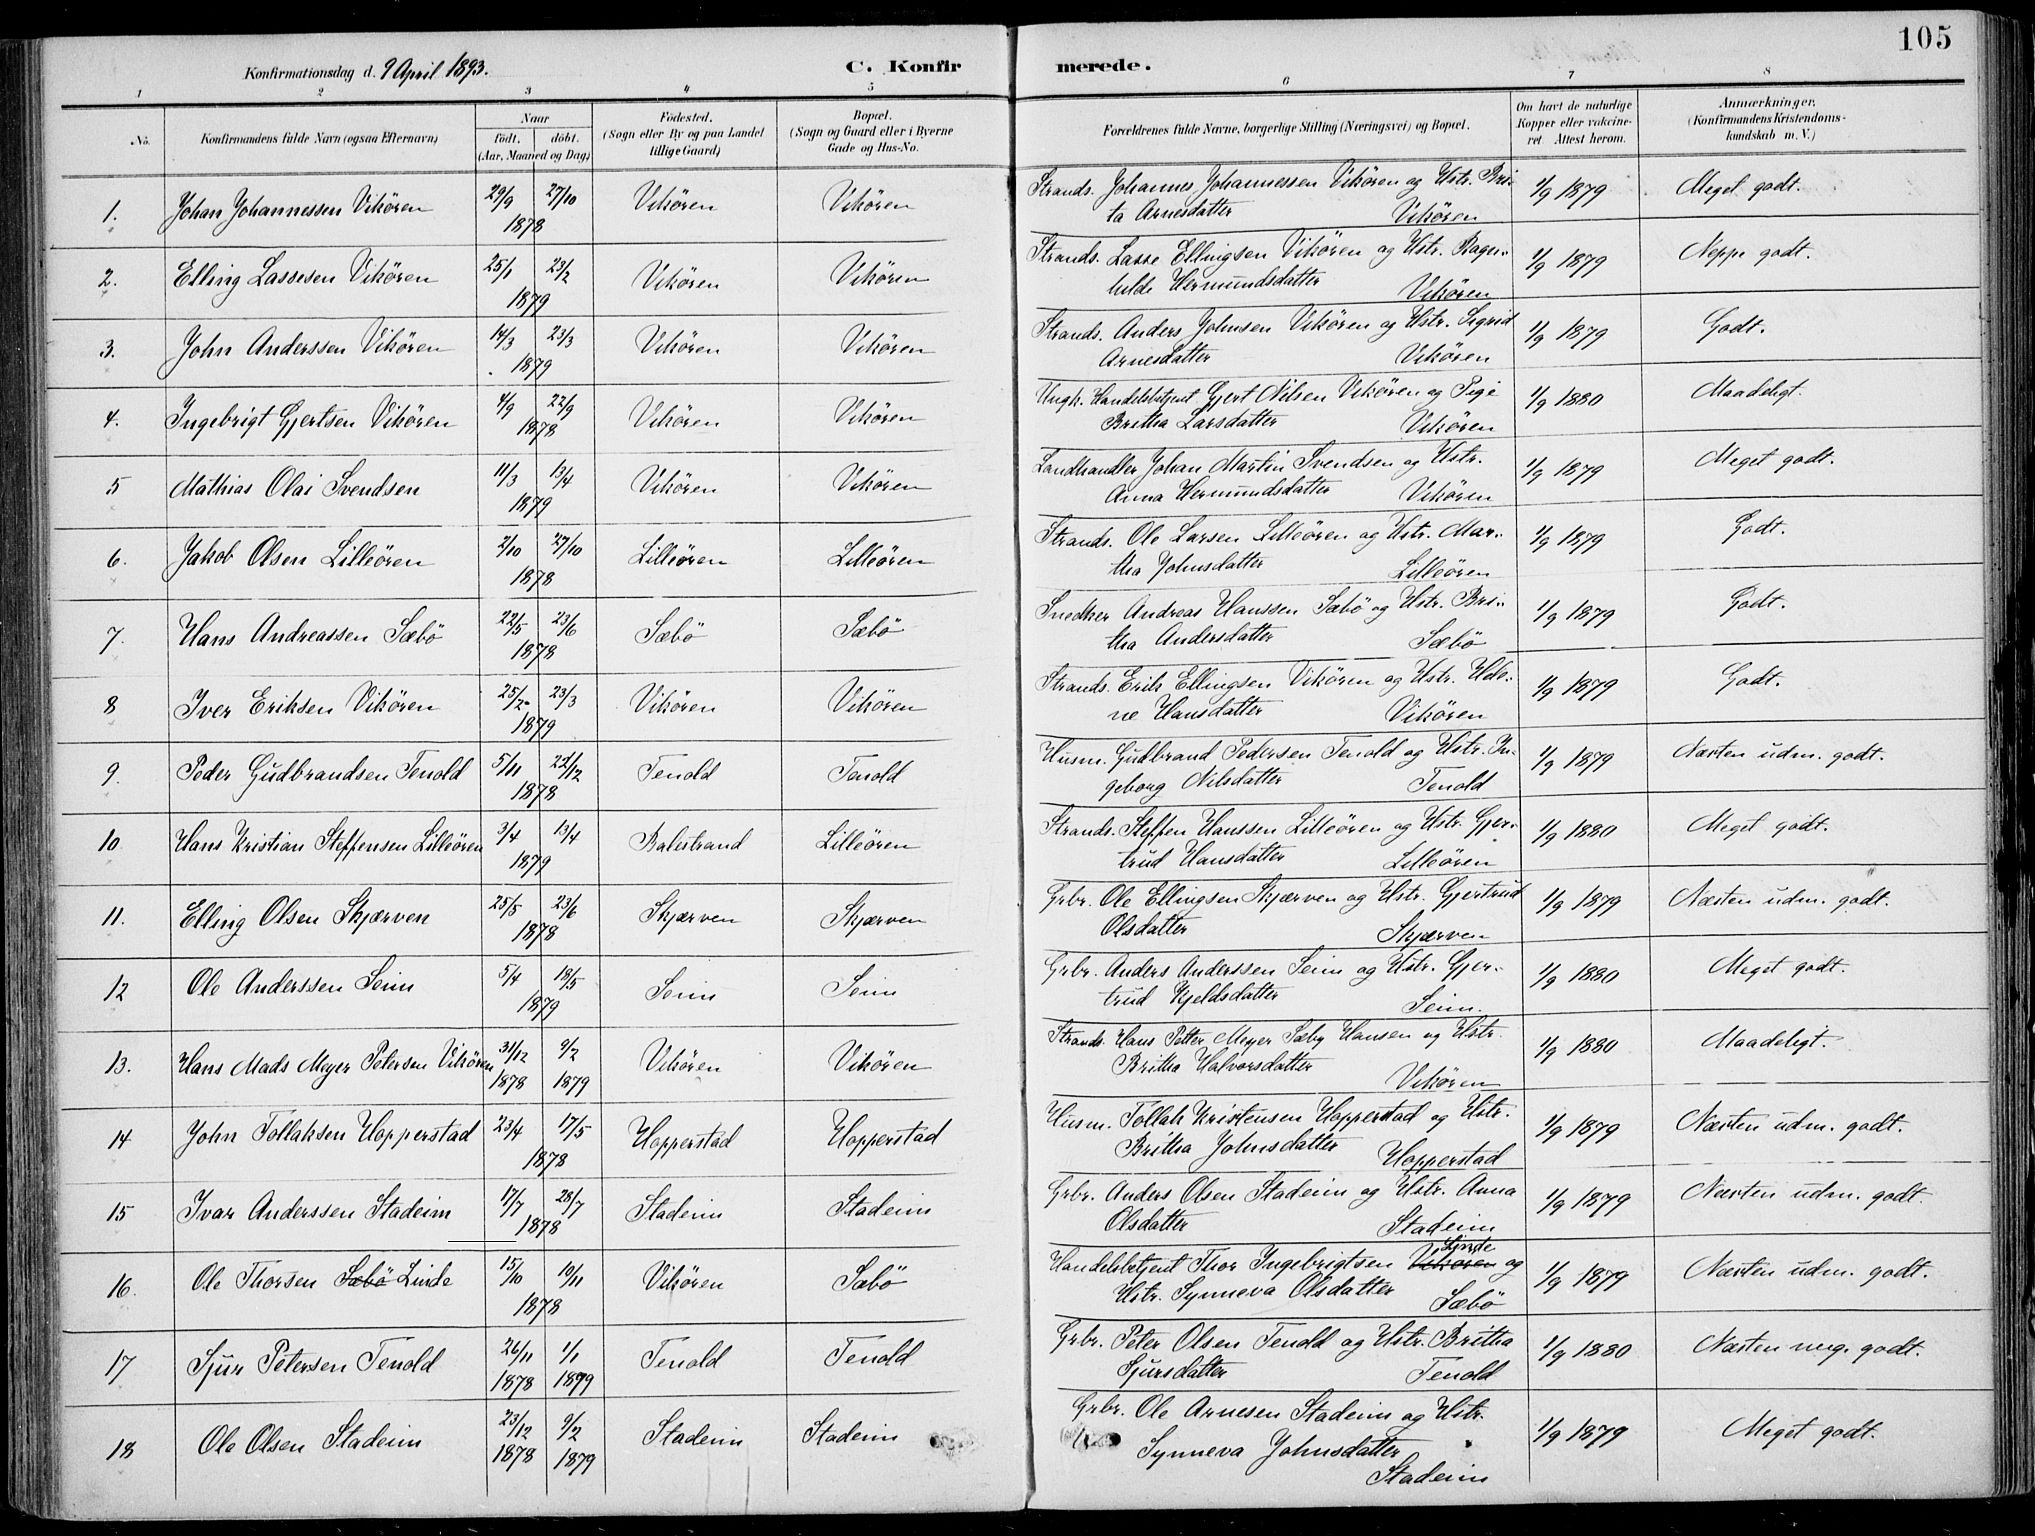 105
Konfirmationsdag d. 9 April 1893. C. Konfirmerede.
1 2 3 4 5 6 7 8
No. Konfirmandens fulde Navn (ogsaa Efternavn) Naar født. døbt. (Aar, Maaned og Dag) Fødested. (Sogn eller By og paa Landet tillige Gaard) Bopæl. (Sogn og Gaard eller i Byerne Gade og Hus-No. Forældrenes fulde Navne, borgerlige Stilling (Næringsvei) og Bopæl. Om havt de naturlige Kopper eller vaccineret. Attest herom. Anmærkninger. (Konfirmandens Kristendomskundskab m. V.)
1. Johan Johannessen Vikören 29/9 27/10 1878 Vikören Vikören Strands. Johannes Johannessen Vikören og Hstr. Bri-
ta Arnesdatter Vikören 1/9 1879 Meget godt.
2. Elling Lassesen Vikören 25/1 23/2 1879 Vikören Vikören Strands. Lasse Ellingsen Vikören og Hstr. Ragn-
hilde Hermundsdatter Vikören 1/9 1879 Neppe godt.
3. John Anderssen Vikören 14/3 23/3 1879 Vikören Vikören Strands. Anders Johnsen Vikören og Hstr. Sigrid
Arnesdatter Vikören 1/9 1879 Godt.
4. Ingebrigt Gjertsen Vikören 4/9 22/9 1878 Vikören Vikören Ungk. Handelsbetjent Gjert Nilsen Vikören og Pige
Brittha Larsdatter Vikören 1/9 1880 Maadeligt.
5 Mathias Olai Svendsen 11/3 13/4 1879 Vikören Vikören Landhandler Johan Martin Svendsen og Hstr.
Anna Hermundsdatter Vikören 1/9 1879 Meget godt.
6. Jakob Olsen Lilleören 2/10 27/10 1878 Lilleören Lilleören Strands. Ole Larsen Lilleören og Hstr. Mar-
tha Johnsdatter Lilleören 1/9 1879 Godt.
7. Hans Andreassen Sæbö 22/5 23/6 1878 Sæbö Sæbö Snedker Andreas Hanssen Sæbö og Hstr. Bri-
tha Andersdatter Sæbö 1/9 1879 Godt.
8 Iver Eriksen Vikören 25/2 23/3 1879 Vikören Vikören Strands. Erik Ellingsen Vikören og Hstr. Hele-
ne Hansdatter Vikören 1/9 1879 Godt.
9. Peder Gudbrandsen Tenold 5/11 22/12 1878 Tenold Tenold Husm. Gudbrand Pedersen Tenold og Hstr. In-
geborg Nilsdatter Tenold 1/9 1879 Næsten udm. godt.
10 Hans Kristian Steffensen Lilleören 3/4 13/4 1879 Balestrand Lilleören Strands. Steffen Hanssen Lilleören og Hstr. Gjer-
trud Hansdatter Lilleören 1/9 1880 Meget godt.
11. Elling Olsen Skjærven 25/5 23/6 1878 Skjærven Skjærven Grbr. Ole Ellingsen Skjærven og Hstr. Gjertrud
Olsdatter Skjærven 1/9 1879 Næsten udm. godt.
12 Ole Anderssen Seim 5/4 18/5 1879 Seim Seim Grbr. Anders Anderssen Seim og Hstr. Gjer-
trud Kjeldsdatter Seim. 1/9 1880 Meget godt.
13. Hans Mads Meyer Petersen Vikören 31/12 1878 9/2 1879 Vikören Vikören Strands. Hans Petter Meyer Sæby Hansen og Hstr.
Brittha Halvorsdatter Vikören 1/9 1880 Maadeligt.
14 John Tollaksen Hopperstad 23/4 17/5 1878 Hopperstad Hopperstad Husm. Tollak Kristensen Hopperstad og Hstr.
Brittha Johnsdatter Hopperstad 1/9 1879 Næsten udm. godt.
15 Ivar Anderssen Stadeim 17/7 28/7 1878 Stadeim Stadeim Grbr. Anders Olsen Stadeim og Hstr. Anna
Olsdatter Stadeim 1/9 1879 Næsten udm. godt.
16. Ole Thorsen Sæbö Linde 15/10 10/11 1878 Vikören Sæbö Handelsbetjent Thor Ingebrigtsen Vikören Linde og
Hstr. Synneva Olsdatter Sæbö 1/9 1879 Næsten udm. godt.
17 Sjur Petersen Tenold 26/11 1878 1/1 1879 Tenold Tenold Grbr. Peter Olsen Tenold og Hstr. Brittha
Sjursdatter Tenold 1/9 1880 Næsten meg. godt.
18 Ole Olsen Stadeim 23/12 1878 9/2 1879 Stadeim Stadeim Grbr. Ole Arnesen Stadeim og Hstr.
Synneva Johnsdatter Stadeim 1/9 1879 Meget godt.